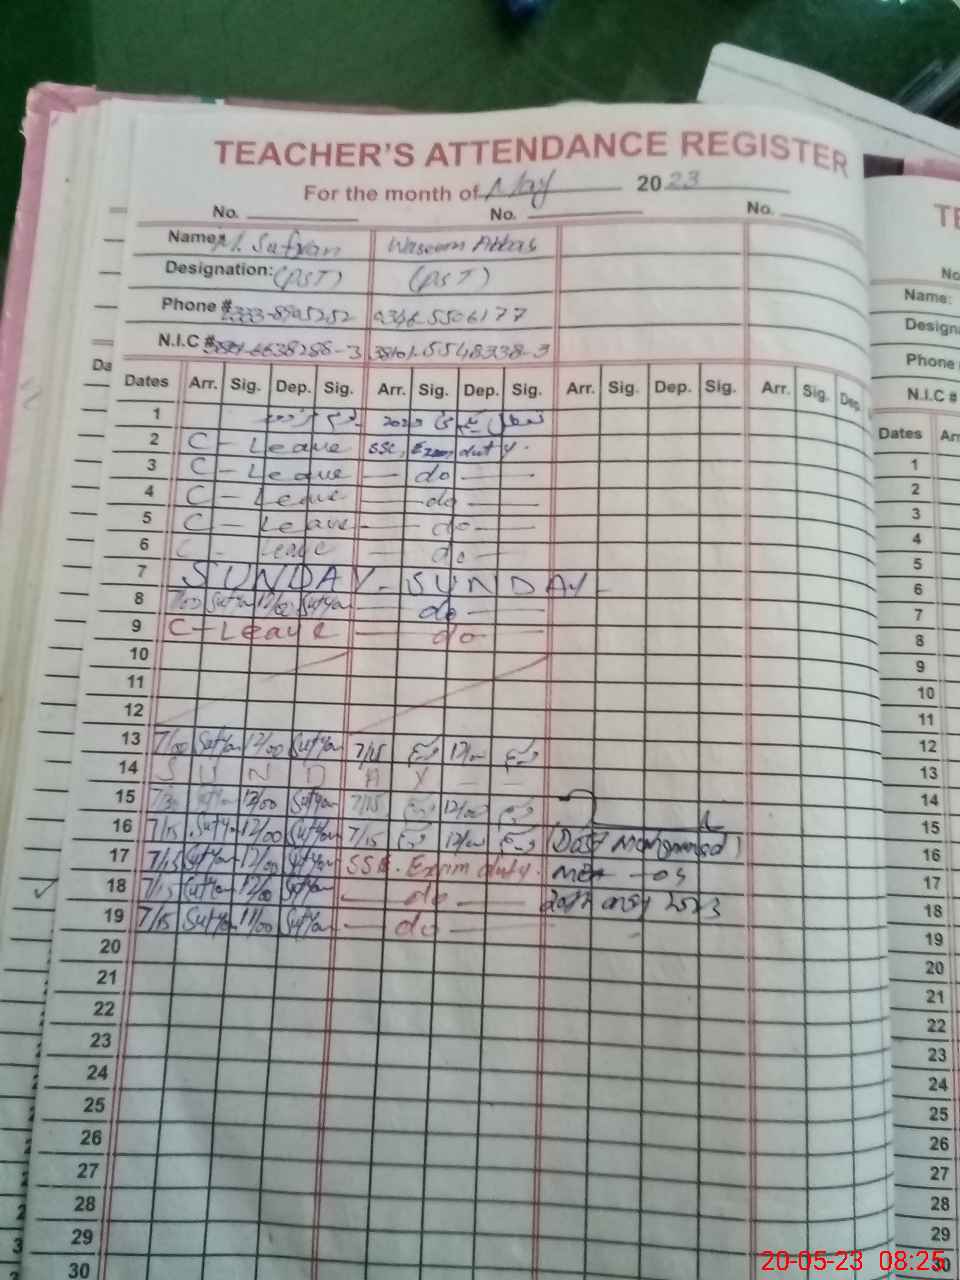 TEACHER'S ATTENDANCE REGISTER
For the month of May 2023
No. No. No.
Name: M. Sufyan Waseem Abbas
Designation: (PST) (PST)
Phone # 0346-5506177
N.I.C # 38101-5548338-3
Dates Arr. Sig. Dep. Sig. Arr. Sig. Dep. Sig. Arr. Sig. Dep. Sig. Arr. Sig. Dep.
1
2 C - Leave SSC, Exam duty.
3 C - Leave — do —
4 C - Leave — do —
5 C - Leave — do —
6 C - Leave — do —
7 SUNDAY - SUNDAY -
8 7/00 Sufyan 12/00 Sufyan — do —
9 C - Leave — do —
10
11
12
13 7/00 Sufyan 12/00 Sufyan 7/15 12/00
14 S U N D A Y — —
15 7/30 Sufyan 12/00 Sufyan 7/15 12/00
16 7/15 Sufyan 12/00 Sufyan 7/15 12/00 (Dost Mohammad)
17 7/15 Sufyan 12/00 Sufyan SSC. Exam duty. MEA - 05
18 7/15 Sufyan 12/00 Sufyan — do — 20th May 2023
19 7/15 Sufyan 11/00 Sufyan — do —
20
21
22
23
24
25
26
27
28
29
30
TE
No
Name:
Design
Phone
N.I.C #
Dates Arr
1
2
3
4
5
6
7
8
9
10
11
12
13
14
15
16
17
18
19
20
21
22
23
24
25
26
27
28
29
30
Da
20-05-23 08:25